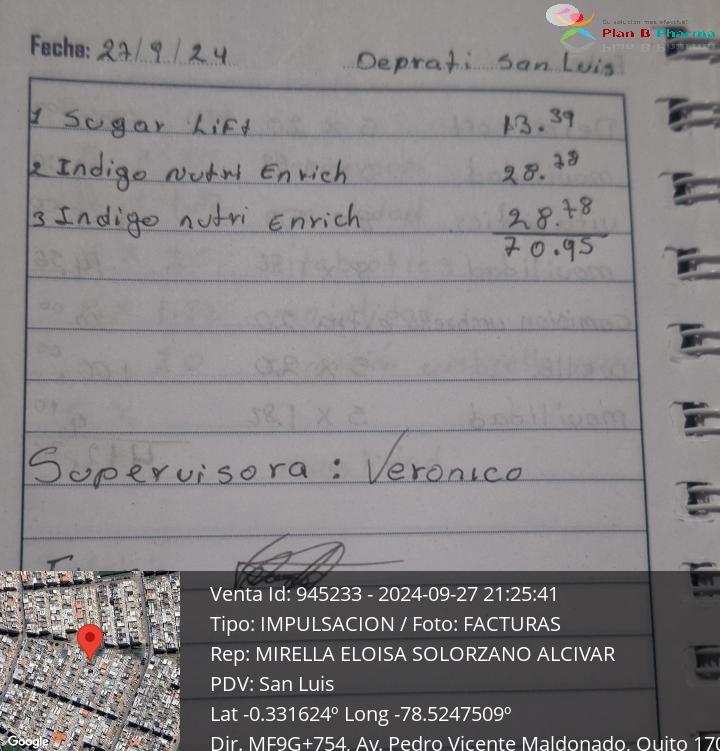 Su solucion mas efectiva!
Plan B Pharma
Fecha: 27/9/24 Deprati San Luis
1 Sugar Lift 13.39
2 Indigo Nutri Enrich 28.78
3 Indigo nutri Enrich 28.78
70.95
Supervisora : Veronica
Venta Id: 945233 - 2024-09-27 21:25:41
Tipo: IMPULSACION / Foto: FACTURAS
Rep: MIRELLA ELOISA SOLORZANO ALCIVAR
PDV: San Luis
Lat -0.331624º Long -78.5247509º
Dir. MF9G+754, Av. Pedro Vicente Maldonado, Quito 170
Google